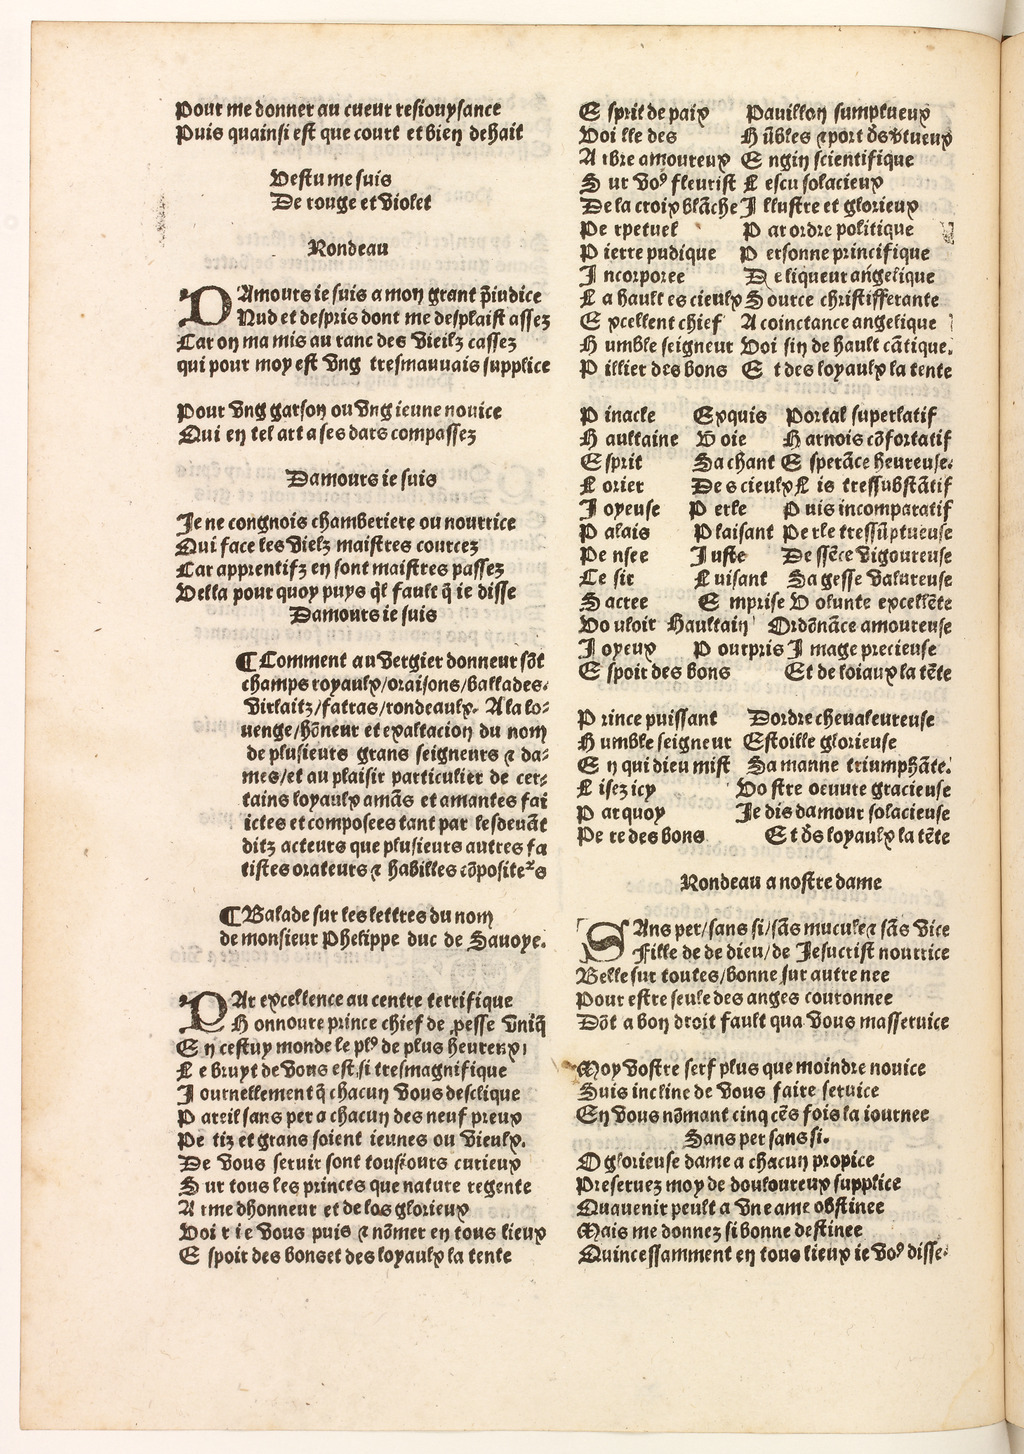 Pour me donner au cueur resiouysance
Puis quainsi est que court et bien dehait
Vestu me suis
De rouge et violet
Rondeau
DAmours ie suis a mon grant p̄iudice
Nud et despris dont me desplaist assez
Car on ma mis au ranc des vieilz cassez
qui pour moy est vng tresmauuais supplice
Pour vng garson ou vng ieune nouice
Qui en tel art a ses dars compassez
Damours ie suis
Je ne congnois chamberiere ou nourrice
Qui face les vielz maistres courcez
Car apprentifz en sont maistres passez
Vella pour quoy puys q̄l fault q̄ ie disse
Damours ie suis
¶ Comment au vergier donneur sōt
champs royaulx/oraisons/ballades.
virlaitz/fatras/rondeaulx. A la lo-
uenge/hōneur et exaltacion du nom
de plusieurs grans seigneurs ⁊ da-
mes/et au plaisir particulier de cer-
tains loyaulx amās et amantes fai
ictes et composees tant par lesdeuāt
ditz acteurs que plusieurs autres fa
tistes orateurs ⁊ habilles cōpositeꝛs
¶ Balade sur les lettres du nom
de monsieur Phelippe duc de Sauoye.
PAr excellence au centre terrifique
H onnoure prince chief de ꝓesse vniq̄
E n cestuy monde le plꝰ de plus heureux
L e bruyt de vous est si tresmagnifique
J ournellement q̄ chacun vous desclique
P areil sans per a chacun des neuf preux
Pe tiz et grans soient ieunes ou vieulx.
De vous seruir sont tousiours curieux
S ur tous les princes que nature regente
A rme dhonneur et de los glorieux
Voi r ie vous puis ⁊ nōmer en tous lieux
E spoir des bons et des loyaulx la tente
E sprit de paix Pauillon sumptueux
Voi lle des Hūbles ⁊ port d̄s v̄tueux
A rbre amoureux E ngin scientifique
S ur voꝰ fleurist L escu solacieux
De la croix blāche J llustre et glorieux
Pe rpetuel P ar ordre politique
P ierre pudique P ersonne principique
J ncorporee De liqueur angelique
L a hault es cieulx S ource christifferante
E xcellent chief A coinctance angelique
H umble seigneur Voi sin de hault cātique.
P illier des bons E t des loyaulx la tente
P inacle Exquis Portal superlatif
H aultaine V oie H arnois cōfortatif
E sprit Sachant E sperāce heureuse.
L orier Des cieulx L is tressubstātif
J oyeuse P erle P uis incomparatif
P alais P laisant Pe rle tressūptueuse
Pe nsee J uste De ssēce vigoureuse
Le sir L uisant Sa gesse valureuse
S acree E mprise V olunte excellēte
Vo uloir Haultain Ordōnāce amoureuse
J oyeux P ourpris J mage precieuse
E spoir des bons Et de loiaux la tēte
P rince puissant Dordre cheualeureuse
H umble seigneur Estoille glorieuse
E n qui dieu mist Sa manne triumphāte.
L isez icy Vo stre oeuure gracieuse
P ar quoy Je dis damour solacieuse
Pe re des bons Et d̄s loyaulx la tēte
Rondeau a nostre dame
SAns per/sans si/sās mucule ⁊ sās vice
Fille de de dieu/de Jesucrist nourrice
Belle sur toutes/bonne sur autre nee
Pour estre seule des anges couronnee
Dōt a bon droit fault qua vous masseruice
Moy vostre serf plus que moindre nouice
Suis incline de vous faire seruice
En vous nōmant cinq cēs fois la iournee
Sans per sans si.
O glorieuse dame a chacun propice
Preseruez moy de douloureux supplice
Quauenir peult a vne ame obstinee
Mais me donnez si bonne destinee
Quincessamment en tous lieux ie voꝰ disse